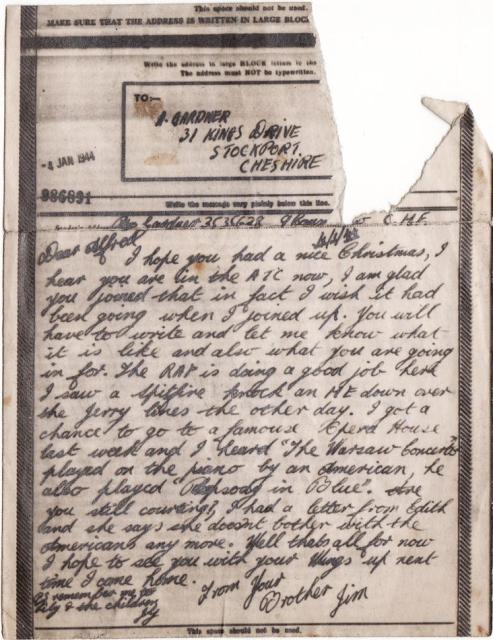 This space should not be used.
MAKE SURE THAT THE ADDRESS IS WRITTEN IN LARGE BLOC
Write the address in large BLOCK letters in the
The address must NOT be typewritten.
TO:—
A. GARDNER
31 KINGS DRIVE
STOCKPORT.
CHESHIRE
-4 JAN 1944
986891
Write the message very plainly below this line.
Gardner C.M.F.
Dear Alfred
I hope you had a nice Christmas, I
hear you are in the ATC now, I am glad
you joined that in fact I wish it had
been going when I joined up. You will
have to write and let me know what
it is like and also what you are going
in for. The RAF is doing a good job here
I saw a Spitfire knock an ME down over
the Jerry lines the other day. I got a
chance to go to a famous Opera House
last week and I heard "The Warsaw Concerto"
played on the piano by an American, he
also played "Rhapsody in Blue". Are
you still courting, I had a letter from Edith
and she says she doesnt bother with the
Americans any more. Well thats all for now
I hope to see you with your Wings up next
time I come home.
From Your
Brother Jim
PS remember me to
Lily & the children
This space should not be used.